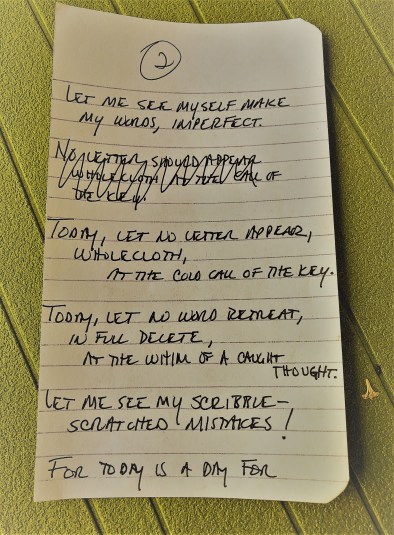 2
LET ME SEE MYSELF MAKE
MY WORDS, IMPERFECT.
NO LETTER SHOULD APPEAR
WHOLECLOTH AT THE CALL OF
THE KEY.
TODAY, LET NO LETTER APPEAR,
WHOLECLOTH,
AT THE COLD CALL OF THE KEY.
TODAY, LET NO WORD RETREAT,
IN FULL DELETE,
AT THE WHIM OF A CAUGHT
THOUGHT.
LET ME SEE MY SCRIBBLE-
SCRATCHED MISTAKES!
FOR TODAY IS A DAY FOR